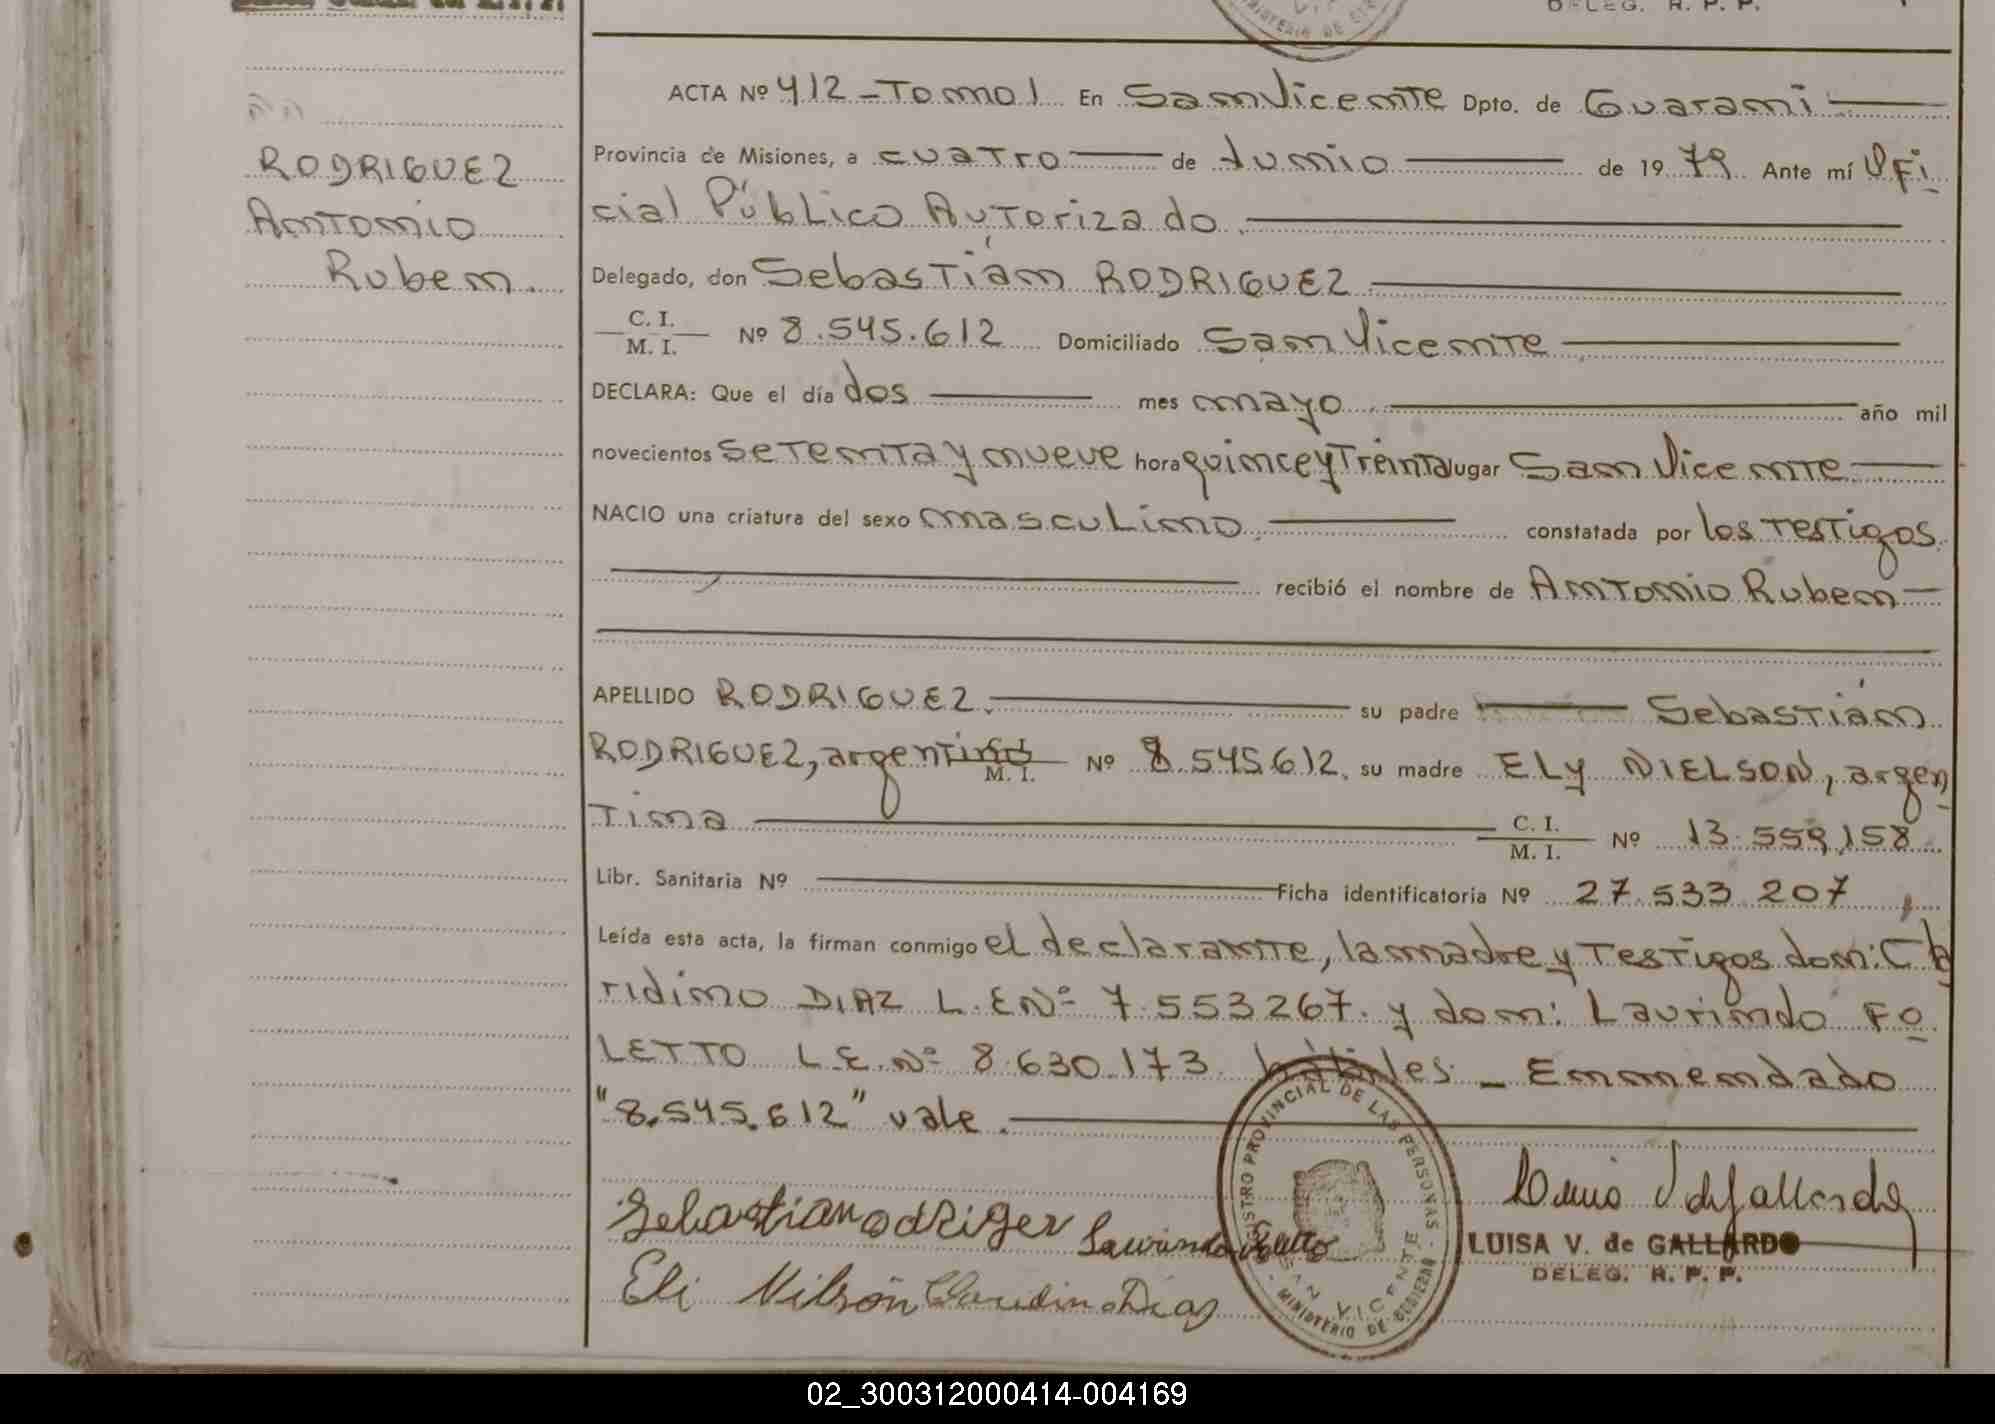 DELEG. R. P. P.
MINISTERIO DE
ACTA Nº 412 - Tomo I En San Vicente Dpto. de Guaraní
Provincia de Misiones, a cuatro de Junio de 1979 Ante mí Ofi
cial Público Autorizado.
RODRIGUEZ
Antonio
Ruben.
Delegado, don Sebastián RODRIGUEZ
C. I.
M. I. Nº 8.545.612 Domiciliado San Vicente
DECLARA: Que el día dos mes mayo año mil
novecientos setenta y nueve hora quince y treinta lugar San Vicente
NACIO una criatura del sexo masculino, constatada por los testigos
recibió el nombre de Antonio Ruben
APELLIDO RODRIGUEZ. su padre Sebastián
RODRIGUEZ, argentino C. I. M. I. Nº 8.545.612. su madre ELY NIELSON, argen
tina C. I. M. I. Nº 13.559.158
Libr. Sanitaria Nº Ficha identificatoria Nº 27.533.207
Leída esta acta, la firman conmigo el declarante, la madre y testigos don: Cla
ridino DIAZ L.E Nº 7.553267. y don: Laurindo FO
LETTO L.E.Nº 8.630.173. hábiles - Enmendado
"8.545.612" vale.
REGISTRO PROVINCIAL DE LAS PERSONAS - MINISTERIO DE GOBIERNO -
SAN VICENTE
Sebastian odriger
Eli Nilson
LUISA V. de GALLARDO
DELEG. R. P. P.
02_300312000414-004169